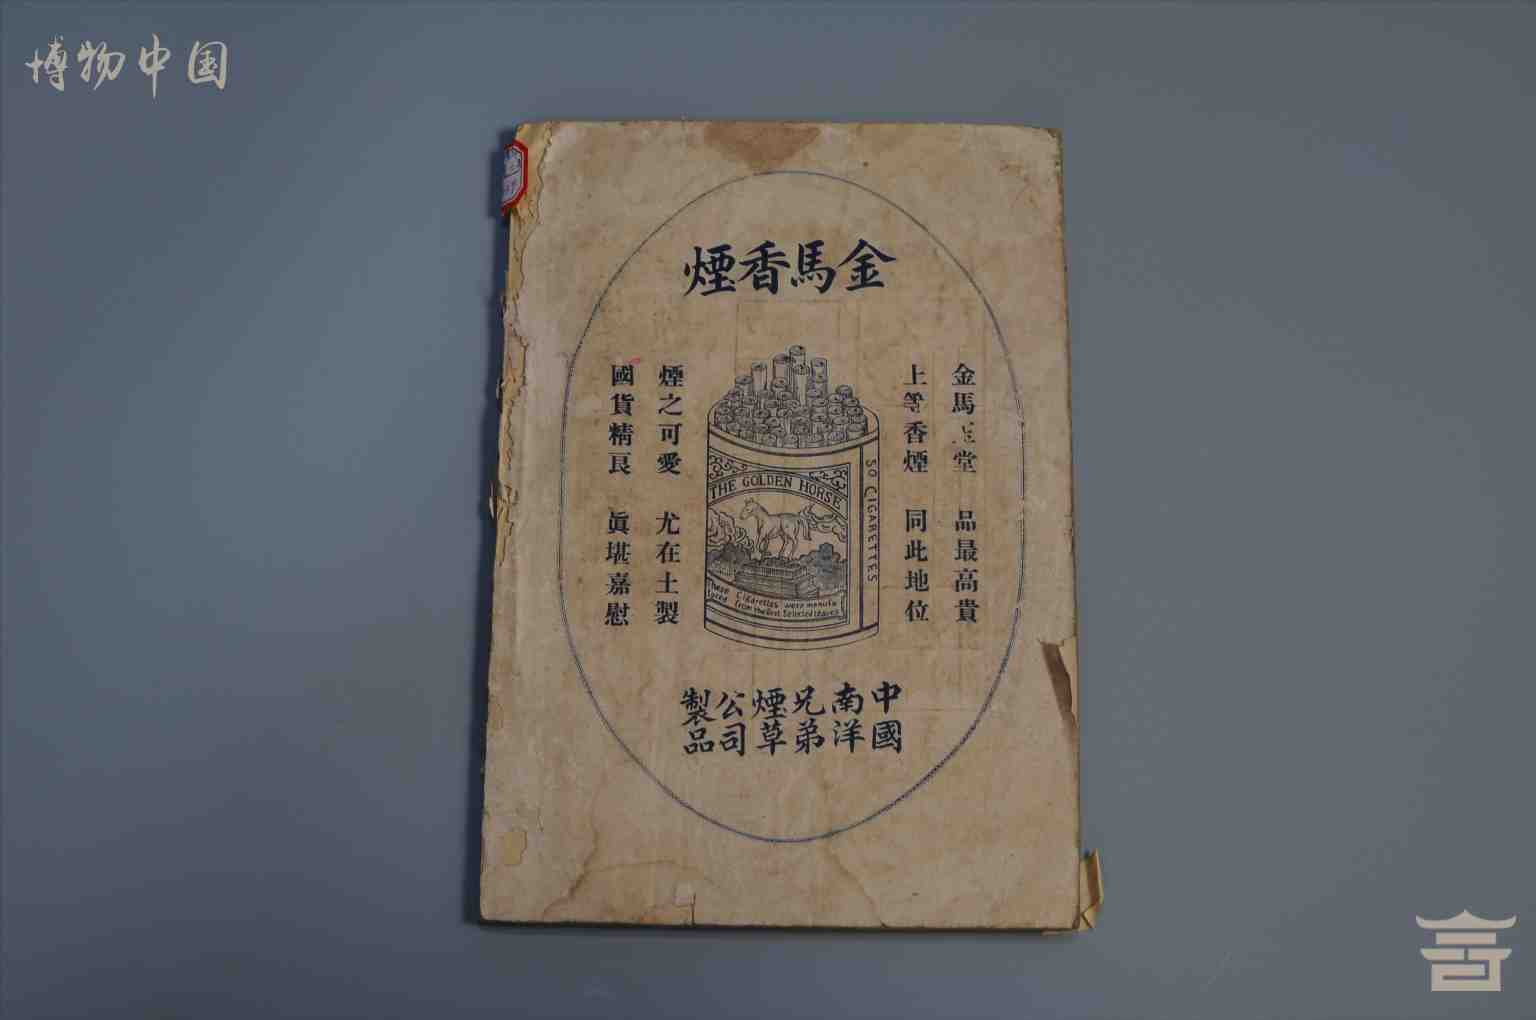 博物中国
金馬香煙
金馬 堂 品最高貴
上等香煙 同此地位
煙之可愛 尤在土製
國貨精良 眞堪嘉慰
THE GOLDEN HORSE
50 CIGARETTES
These Cigarettes were manufa
ctured from the Best Selected Leaves
中國南洋兄弟煙草公司製品